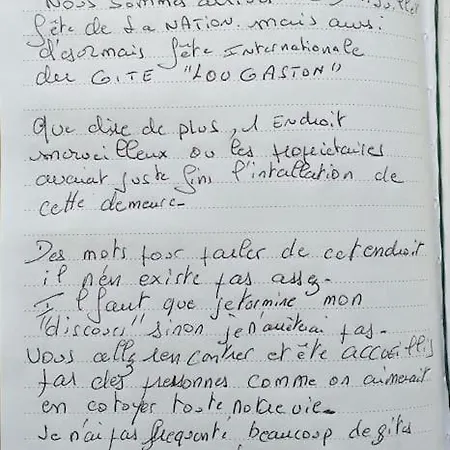 Nous sommes
fête de La NATION. mais aussi
désormais fête INternationale
du GITE "LOU GASTON"
Que dire de plus, 1 ENdroit
merveilleux ou les propriétaires
avaiat juste fini l'intallation de
cette demeure-
Des mots pour parler de cet endroit
il n'en existe pas assez-
Il faut que je termine mon
"discours" sinon je n'arrêterai pas-
Vous allez rencontrer et être accueillis
par des personnes comme on aimerait
en cotoyer toute notre vie-
Je n'ai pas frequenté, beaucoup de gites